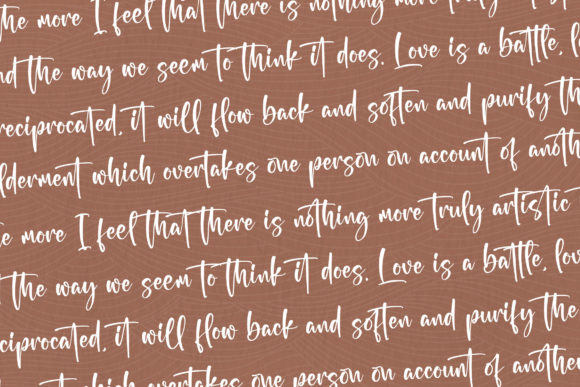 the more I feel that there is nothing more truly artist
nd the way we seem to think it does. Love is a battle, lo
reciprocated, it will flow back and soften and purify th
lderment which overtakes one person on account of anoth
e more I feel that there is nothing more truly artistic
t the way we seem to think it does. Love is a battle, lov
ciprocated, it will flow back and soften and purify the
t which overtakes one person on account of another